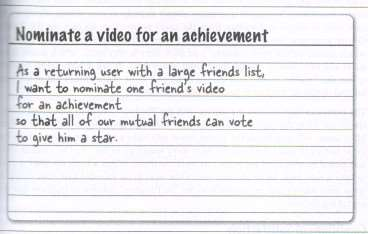 Nominate a video for an achievement
As a returning user with a large friends list,
I want to nominate one friend's video
for an achievement
so that all of our mutual friends can vote
to give him a star.